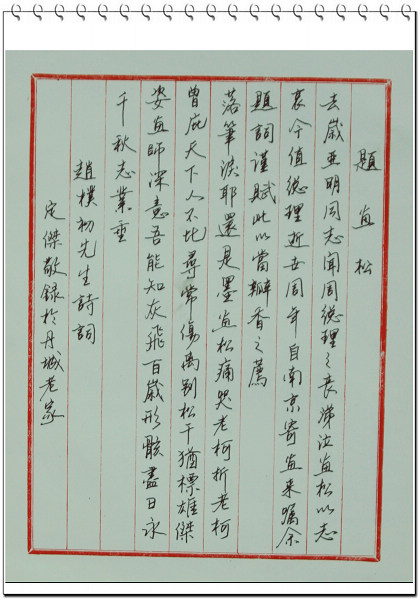 題畫松
去歲亞明同志聞周總理之喪涕泣畫松以志
哀今值總理逝世周年自南京寄畫来囑余
題詞謹賦此以當瓣香之薦
落筆淚耶還是墨畫松痛哭老柯折老柯
曾庇天下人不比尋常傷离別松干猶標雄傑
姿畫師深意吾能知灰飛百歲形骸盡日永
千秋志業垂
趙樸初先生詩詞
定傑敬録於丹城老家